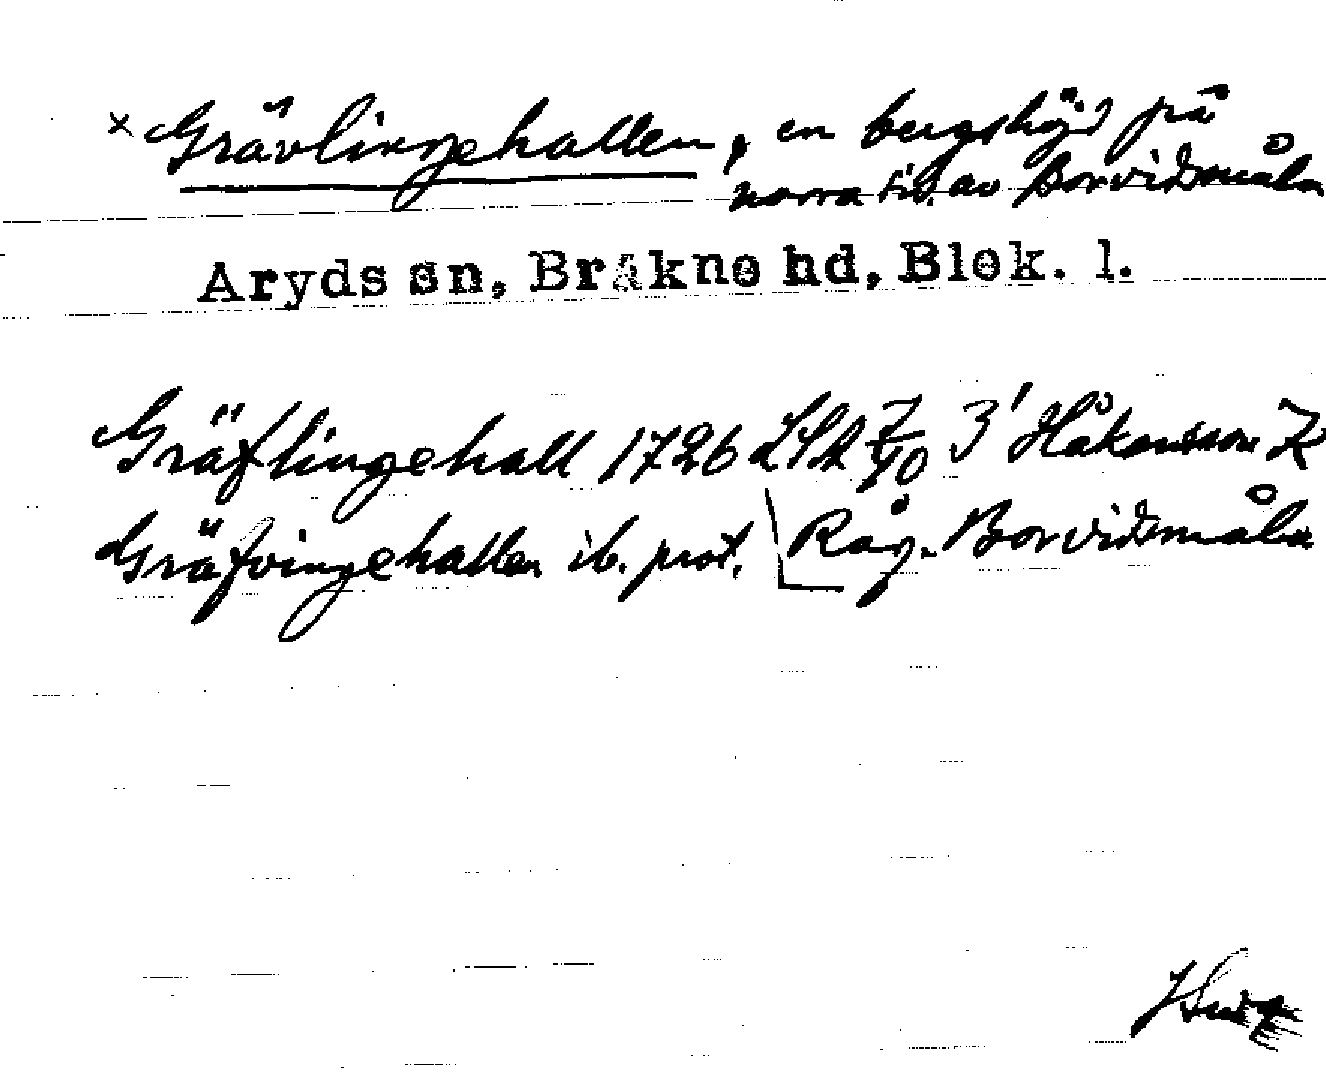 × Grävlingehallen, en bergshöjd på
norra sid. av Borvidsmåla
Aryds sn, Bräkne hd, Blek. l.
Gräflingehall 1726 LSA 7/40 3' Håkansson K
Gräfvingehallen ib. prot. Råg. Borvidsmåla